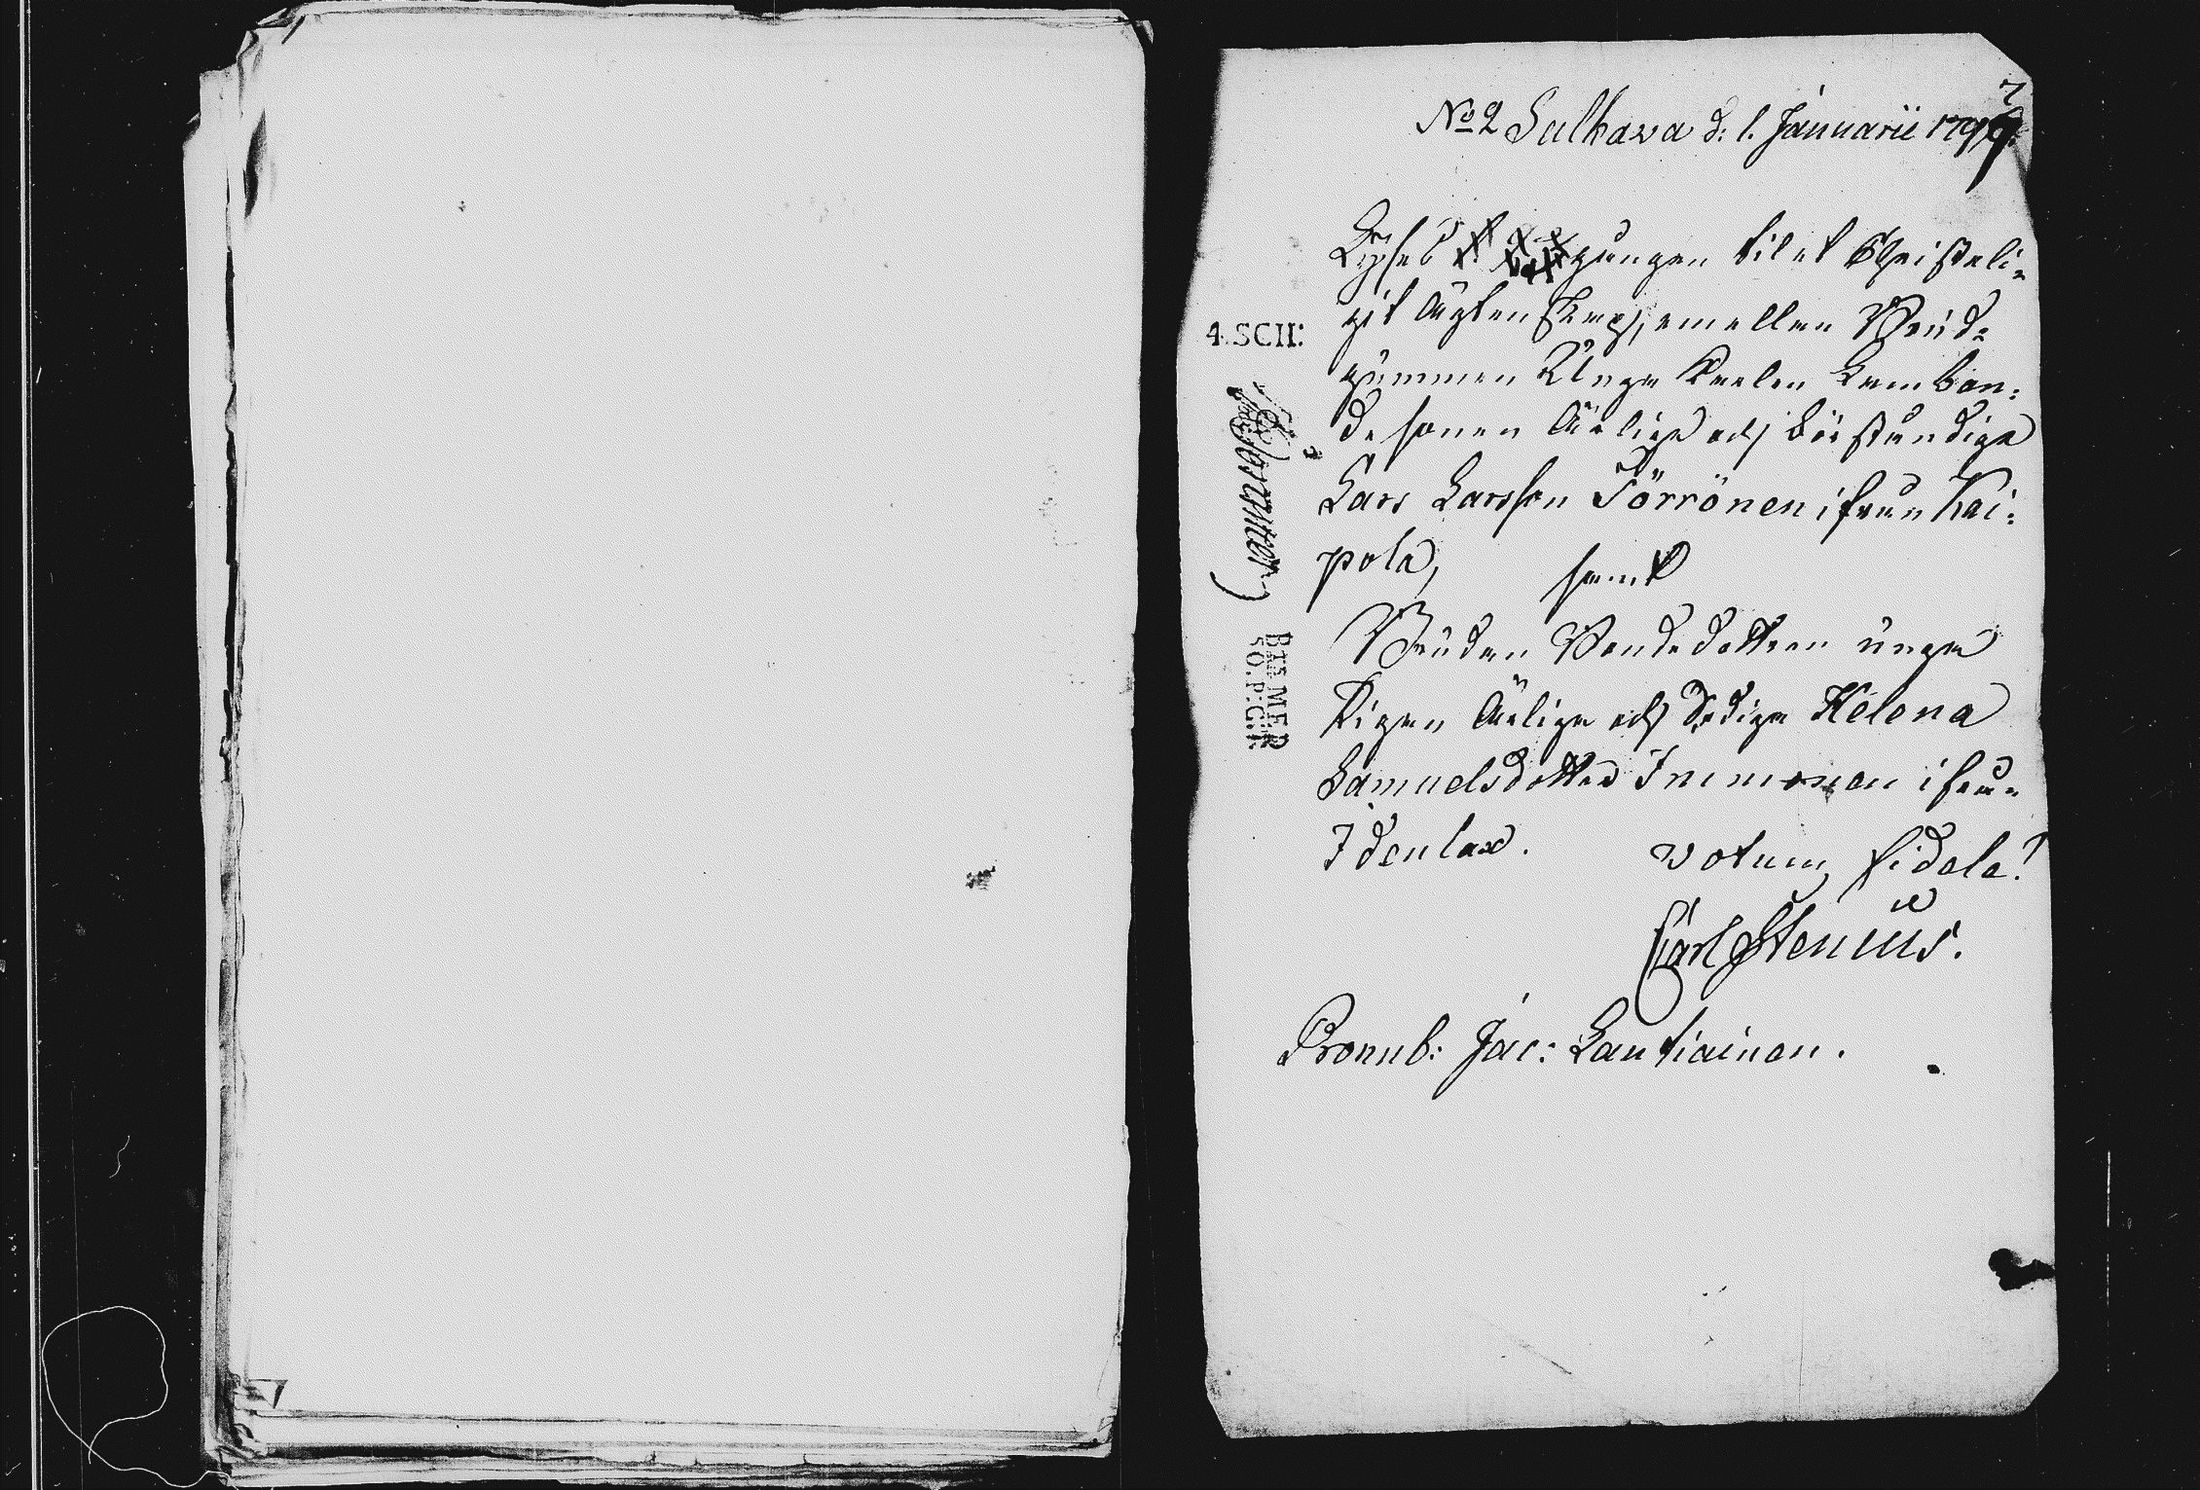 No 2 Sulkava d: 1. Januarii 1797.
2
Lyses t gången til et Christeli=
git ägtenskap, emellan Brud=
gummen Unga Karlen Lambon=
de sonen Ärlige och Böistundige
Lars Larsson Törrönen ifrån Kai=
pola, samt
Bruden Bondedottren unga
Pigan Ärliga och Sediga Helena
Samuelsdotter Immonen ifrån
Idenlax. votum fidele!
Carl Stenius.
Pronub: Jac: Lautiainen.
4.SCH:
BTR MER
5O.P:G:R